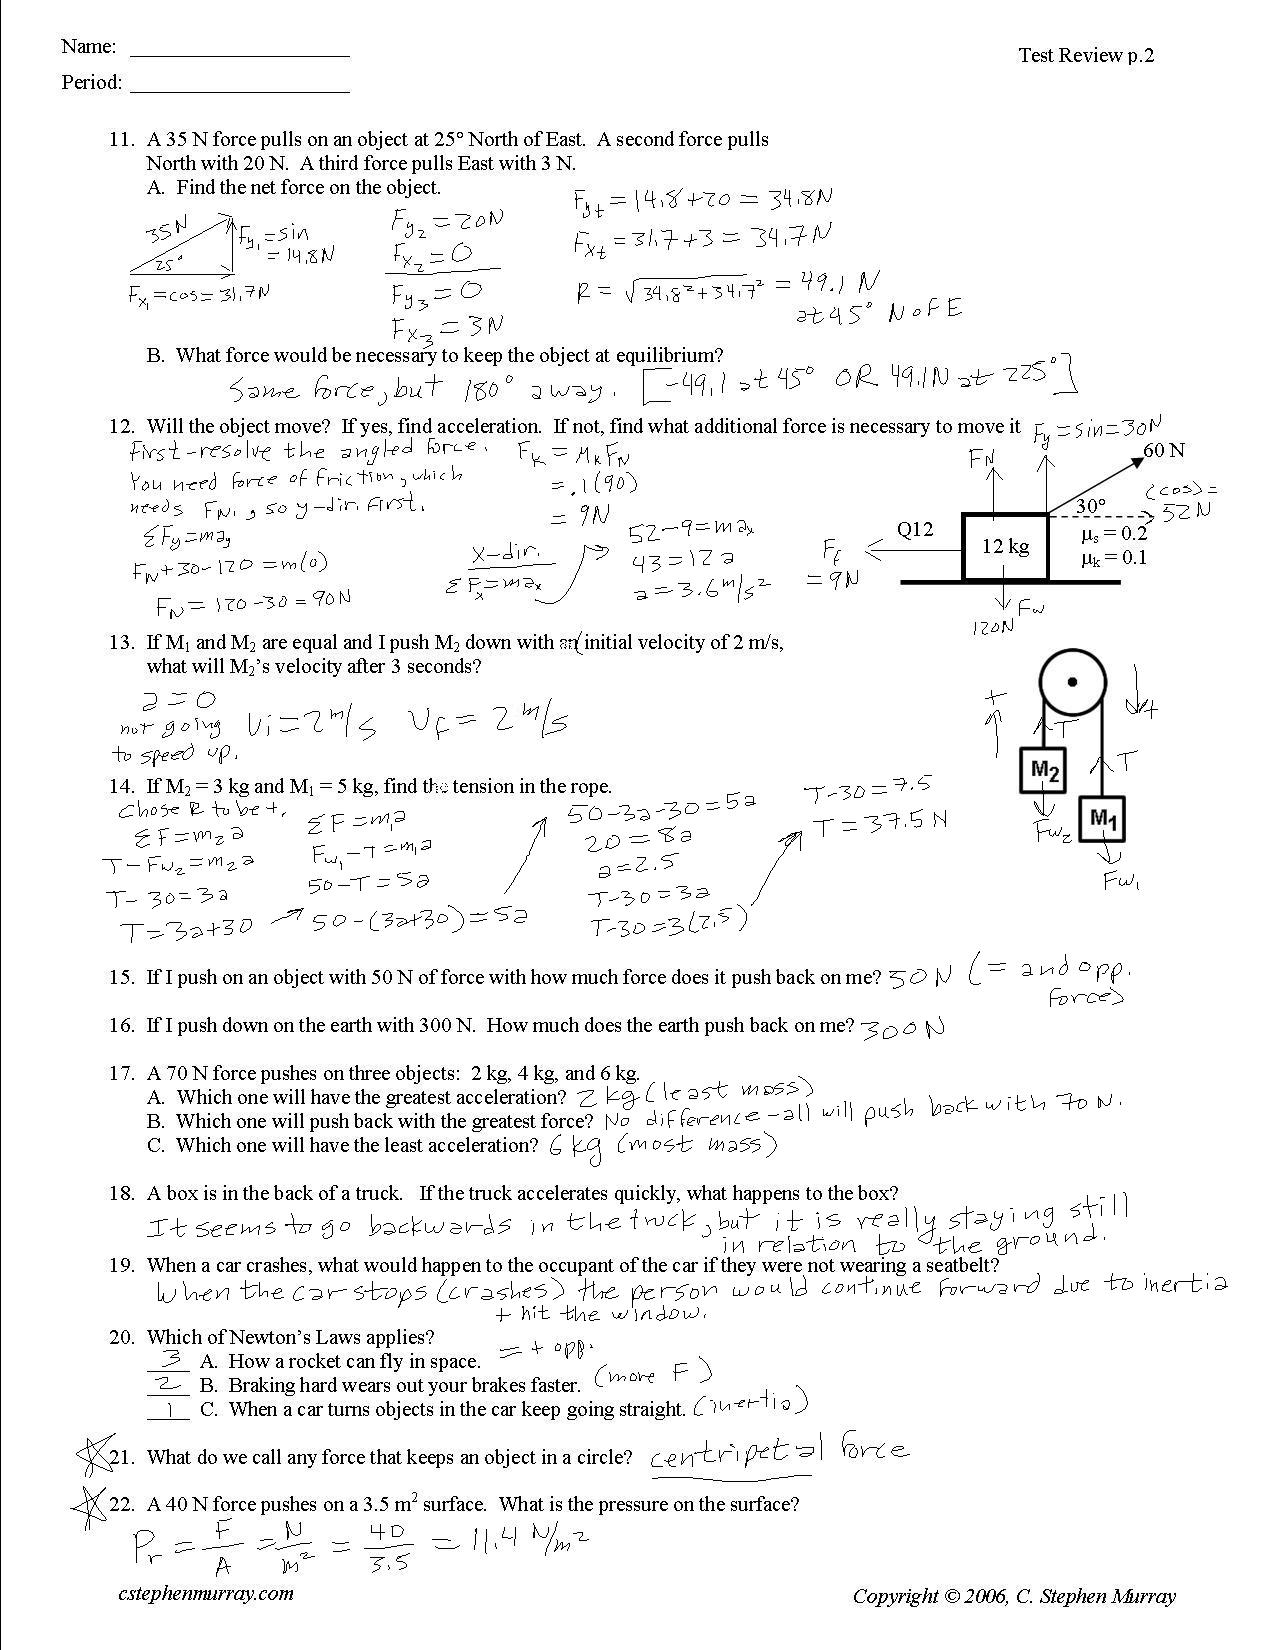 Name: ____________________
Test Review p.2
Period: ____________________
11. A 35 N force pulls on an object at 25° North of East. A second force pulls
North with 20 N. A third force pulls East with 3 N.
A. Find the net force on the object.
35N
25°
Fy₁ = sin
= 14.8N
Fx₁ = cos = 31.7N
Fy₂ = 20N
Fx₂ = 0
Fy₃ = 0
Fx₃ = 3N
Fyt = 14.8 + 20 = 34.8N
Fxt = 31.7 + 3 = 34.7N
R = √34.8² + 34.7² = 49.1 N
at 45° N of E
B. What force would be necessary to keep the object at equilibrium?
Same force, but 180° away. [-49.1 at 45° OR 49.1N at 225°]
12. Will the object move? If yes, find acceleration. If not, find what additional force is necessary to move it
First-resolve the angled force.
You need force of friction, which
needs FN, so y-dir. first.
ΣFy = may
FN + 30 - 120 = m(0)
FN = 120 - 30 = 90N
Fk = μk FN
= .1(90)
= 9N
x-dir.
ΣFx = max
52 - 9 = max
43 = 12a
a = 3.6 m/s²
Fy = sin = 30N
FN
60 N
30°
(cos) =
52N
Q12
12 kg
μs = 0.2
μk = 0.1
Ff
= 9N
Fw
120N
13. If M₁ and M₂ are equal and I push M₂ down with an initial velocity of 2 m/s,
what will M₂'s velocity after 3 seconds?
a = 0
not going
to speed up.
Vi = 2 m/s Vf = 2 m/s
+
+
T
T
M₂
M₁
Fw₂
Fw₁
14. If M₂ = 3 kg and M₁ = 5 kg, find the tension in the rope.
Chose R to be +.
ΣF = m₂a
T - Fw₂ = m₂a
T - 30 = 3a
T = 3a + 30
ΣF = m₁a
Fw₁ - T = m₁a
50 - T = 5a
50 - (3a + 30) = 5a
50 - 3a - 30 = 5a
20 = 8a
a = 2.5
T - 30 = 3a
T - 30 = 3(2.5)
T - 30 = 7.5
T = 37.5 N
15. If I push on an object with 50 N of force with how much force does it push back on me? 50 N (= and opp.
forces)
16. If I push down on the earth with 300 N. How much does the earth push back on me? 300 N
17. A 70 N force pushes on three objects: 2 kg, 4 kg, and 6 kg.
A. Which one will have the greatest acceleration? 2 kg (least mass)
B. Which one will push back with the greatest force? No difference - all will push back with 70 N.
C. Which one will have the least acceleration? 6 kg (most mass)
18. A box is in the back of a truck. If the truck accelerates quickly, what happens to the box?
It seems to go backwards in the truck, but it is really staying still
in relation to the ground.
19. When a car crashes, what would happen to the occupant of the car if they were not wearing a seatbelt?
When the car stops (crashes) the person would continue forward due to inertia
+ hit the window.
20. Which of Newton's Laws applies?
3 A. How a rocket can fly in space. = + opp.
2 B. Braking hard wears out your brakes faster. (more F)
1 C. When a car turns objects in the car keep going straight. (inertia)
21. What do we call any force that keeps an object in a circle? centripetal force
22. A 40 N force pushes on a 3.5 m² surface. What is the pressure on the surface?
Pr = F/A = N/m² = 40/3.5 = 11.4 N/m²
cstephenmurray.com
Copyright © 2006, C. Stephen Murray